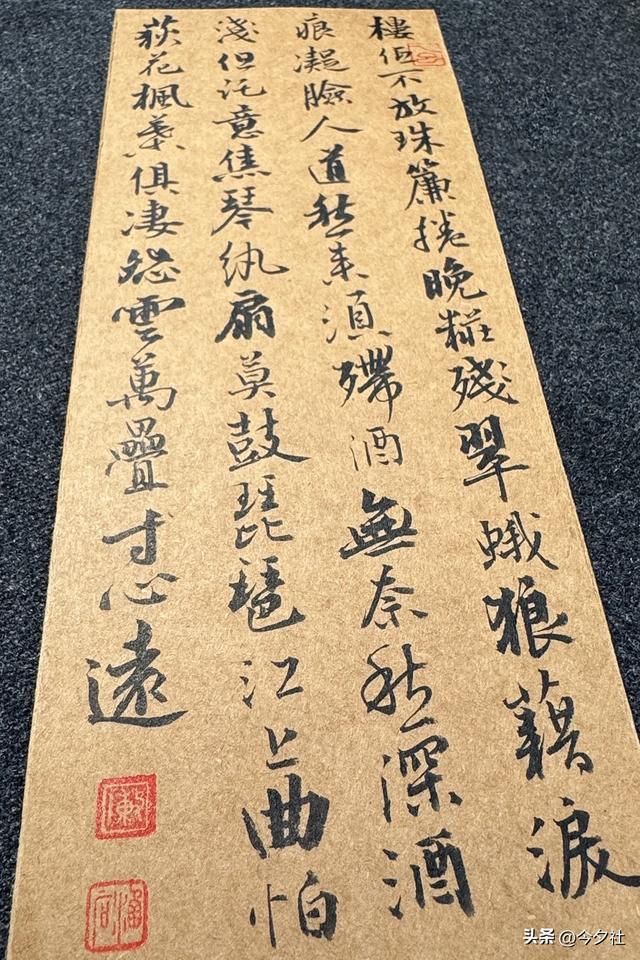 樓低不放珠簾捲晚糚殘翠蛾狼藉淚
痕凝臉人道愁來須殢酒無奈愁深酒
淺但託意焦琴紈扇莫鼓琵琶江上曲怕
荻花楓葉俱淒怨雲萬疊寸心遠
头条 @今夕社